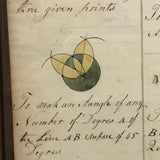 three given points.
To make an Angle of any
Number of Degrees A of
the Line AB Suppose of 45
Degrees